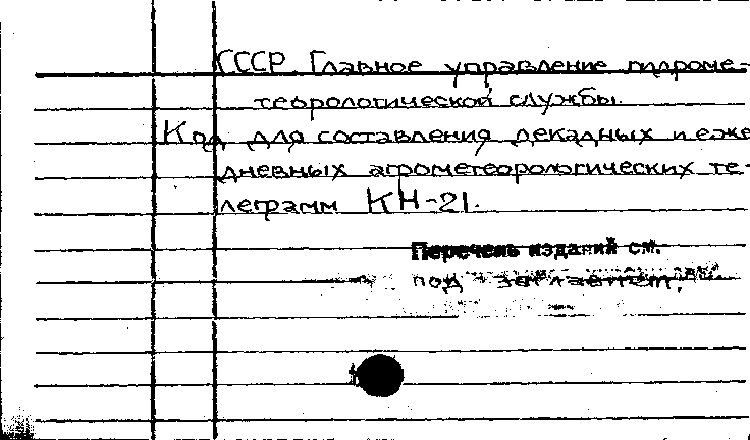 СССР. Главное управление гидроме-
теорологической службы.
Код для составления декадных и еже-
дневных агрометеорологических те-
леграмм КН-21.
Перечень изданий см.
под заглавием.